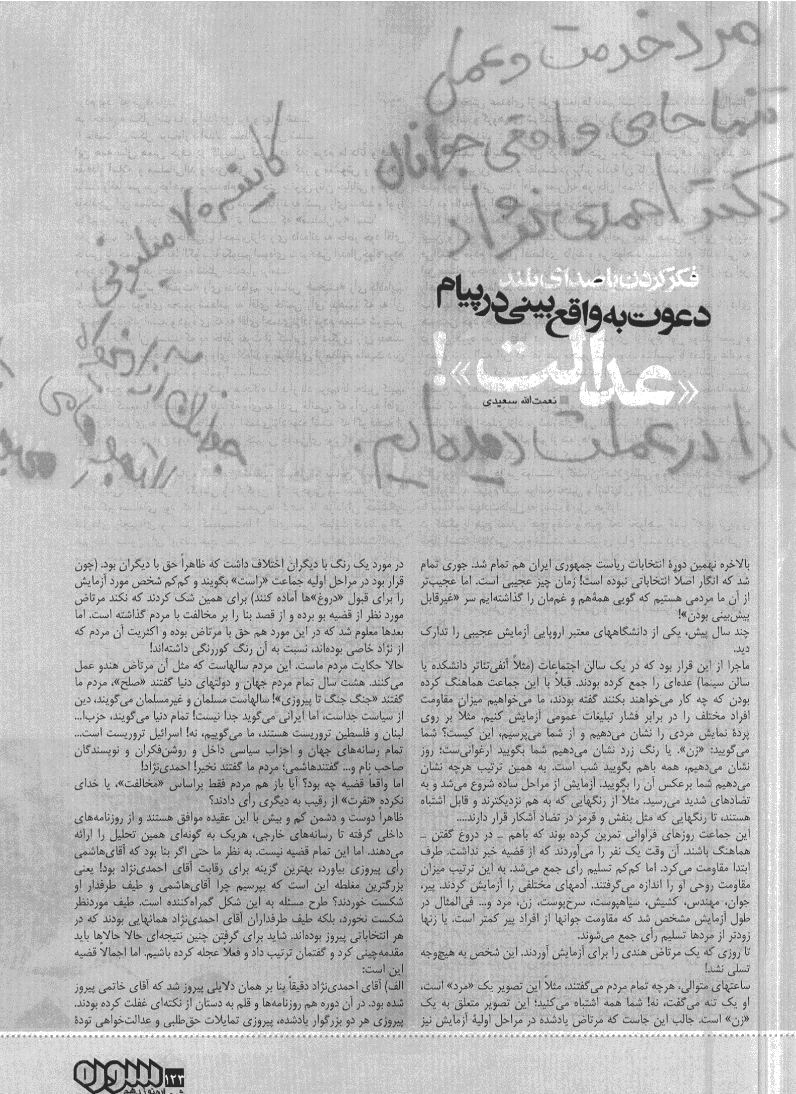 مرد خدمت و عمل
تنها حامی واقعی جوانان
دکتر احمدی نژاد
کابینه ۷۰ میلیونی
فکر کردن با صدای بلند
دعوت به واقع بینی در پیام
«عدالت»!
نعمت‌الله سعیدی
را در عملت دیده‌ایم.
بالاخره نهمین دورهٔ انتخابات ریاست جمهوری ایران هم تمام شد. جوری تمام
شد که انگار اصلاً انتخاباتی نبوده است! زمان چیز عجیبی است. اما عجیب‌تر
از آن ما مردمی هستیم که گویی همه‌هم و غم‌مان را گذاشته‌ایم سر «غیرقابل
پیش‌بینی بودن»!
چند سال پیش، یکی از دانشگاههای معتبر اروپایی آزمایش عجیبی را تدارک
دید.
ماجرا از این قرار بود که در یک سالن اجتماعات (مثلاً آنفی‌تئاتر دانشکده یا
سالن سینما) عده‌ای را جمع کرده بودند. قبلاً با این جماعت هماهنگ کرده
بودن که چه کار می‌خواهند بکنند گفته بودند، ما می‌خواهیم میزان مقاومت
افراد مختلف را در برابر فشار تبلیغات عمومی آزمایش کنیم. مثلاً بر روی
پردهٔ نمایش مردی را نشان می‌دهیم و از شما می‌پرسیم، این کیست؟ شما
می‌گویید: «زن». یا رنگ زرد نشان می‌دهیم شما بگویید ارغوانی‌ست؛ روز
نشان می‌دهیم، همه باهم بگویید شب است. به همین ترتیب هرچه نشان
می‌دهیم شما برعکس آن را بگویید. آزمایش از مراحل ساده شروع می‌شد و به
تضادهای شدید می‌رسید. مثلاً از رنگهایی که به هم نزدیکترند و قابل اشتباه
هستند، تا رنگهایی که مثل بنفش و قرمز در تضاد آشکار قرار دارند....
این جماعت روزهای فراوانی تمرین کرده بوند که باهم _ در دروغ گفتن _
هماهنگ باشند. آن وقت یک نفر را می‌آوردند که از قضیه خبر نداشت. طرف
ابتدا مقاومت می‌کرد. اما کم‌کم تسلیم رأی جمع می‌شد. به این ترتیب میزان
مقاومت روحی او را اندازه می‌گرفتند. آدمهای مختلفی را آزمایش کردند. پیر،
جوان، مهندس، کشیش، سیاهپوست، سرخ‌پوست، زن، مرد و... فی‌المثال در
طول آزمایش مشخص شد که مقاومت جوانها از افراد پیر کمتر است. یا زنها
زودتر از مردها تسلیم رأی جمع می‌شوند.
تا روزی که یک مرتاض هندی را برای آزمایش آوردند. این شخص به هیچ‌وجه
تسلی نشد!
ساعتهای متوالی، هرچه تمام مردم می‌گفتند، مثلاً این تصویر یک «مرد» است،
او یک تنه می‌گفت، نه! شما همه اشتباه می‌کنید؛ این تصویر متعلق به یک
«زن» است. جالب این جاست که مرتاض یادشده در مراحل اولیهٔ آزمایش نیز
در مورد یک رنگ با دیگران اختلاف داشت که ظاهراً حق با دیگران بود. (چون
قرار بود در مراحل اولیه جماعت «راست» بگویند و کم‌کم شخص مورد آزمایش
را برای قبول «دروغ»ها آماده کنند) برای همین شک کردند که نکند مرتاض
مورد نظر از قضیه بو برده و از قصد بنا را بر مخالفت با مردم گذاشته است. اما
بعدها معلوم شد که در این مورد هم حق با مرتاض بوده و اکثریت آن مردم که
از نژاد خاصی بوده‌اند، نسبت به آن رنگ کوررنگی داشته‌اند!
حالا حکایت مردم ماست. این مردم سالهاست که مثل آن مرتاض هندو عمل
می‌کنند. هشت سال تمام مردم جهان و دولتهای دنیا گفتند «صلح»، مردم ما
گفتند «جنگ جنگ تا پیروزی»! سالهاست مسلمان و غیرمسلمان می‌گویند، دین
از سیاست جداست، اما ایرانی می‌گوید جدا نیست! تمام دنیا می‌گویند، حزب‌ا...
لبنان و فلسطین تروریست هستند، ما می‌گوییم، نه! اسرائیل تروریست است...
تمام رسانه‌های جهان و احزاب سیاسی داخل و روشن‌فکران و نویسندگان
صاحب نام و... گفتندهاشمی؛ مردم ما گفتند نخیر! احمدی‌نژاد!
اما واقعاً قضیه چه بود؟ آیا باز هم مردم فقط براساس «مخالفت»، یا خدای
نکرده «نفرت» از رقیب به دیگری رأی دادند؟
ظاهراً دوست و دشمن کم و بیش با این عقیده موافق هستند و از روزنامه‌های
داخلی گرفته تا رسانه‌های خارجی، هریک به گونه‌ای همین تحلیل را ارائه
می‌دهند. اما این تمام قضیه نیست. به نظر ما حتی اگر بنا بود که آقای‌هاشمی
رأی پیروزی بیاورد، بهترین گزینه برای رقابت آقای احمدی‌نژاد بود! یعنی
بزرگترین مغلطه این است که بپرسیم چرا آقای‌هاشمی و طیف طرفدار او
شکست خوردند؟ طرح مسئله به این شکل گمراه‌کننده است. طیف موردنظر
شکست نخورد، بلکه طیف طرفداران آقای احمدی‌نژاد همانهایی بودند که در
هر انتخاباتی پیروز بوده‌اند. شاید برای گرفتن چنین نتیجه‌ای حالا حالاها باید
مقدمه‌چینی کرد و گفتمان ترتیب داد و فعلاً عجله کرده باشیم. اما اجمالاً قضیه
این است:
الف) آقای احمدی‌نژاد دقیقاً بنا بر همان دلایلی پیروز شد که آقای خاتمی پیروز
شده بود. در آن دوره هم روزنامه‌ها و قلم به دستان از نکته‌ای غفلت کرده بودند.
پیروزی هر دو بزرگوار یادشده، پیروزی تمایلات حق‌طلبی و عدالت‌خواهی تودهٔ
سوره ۱۲۳